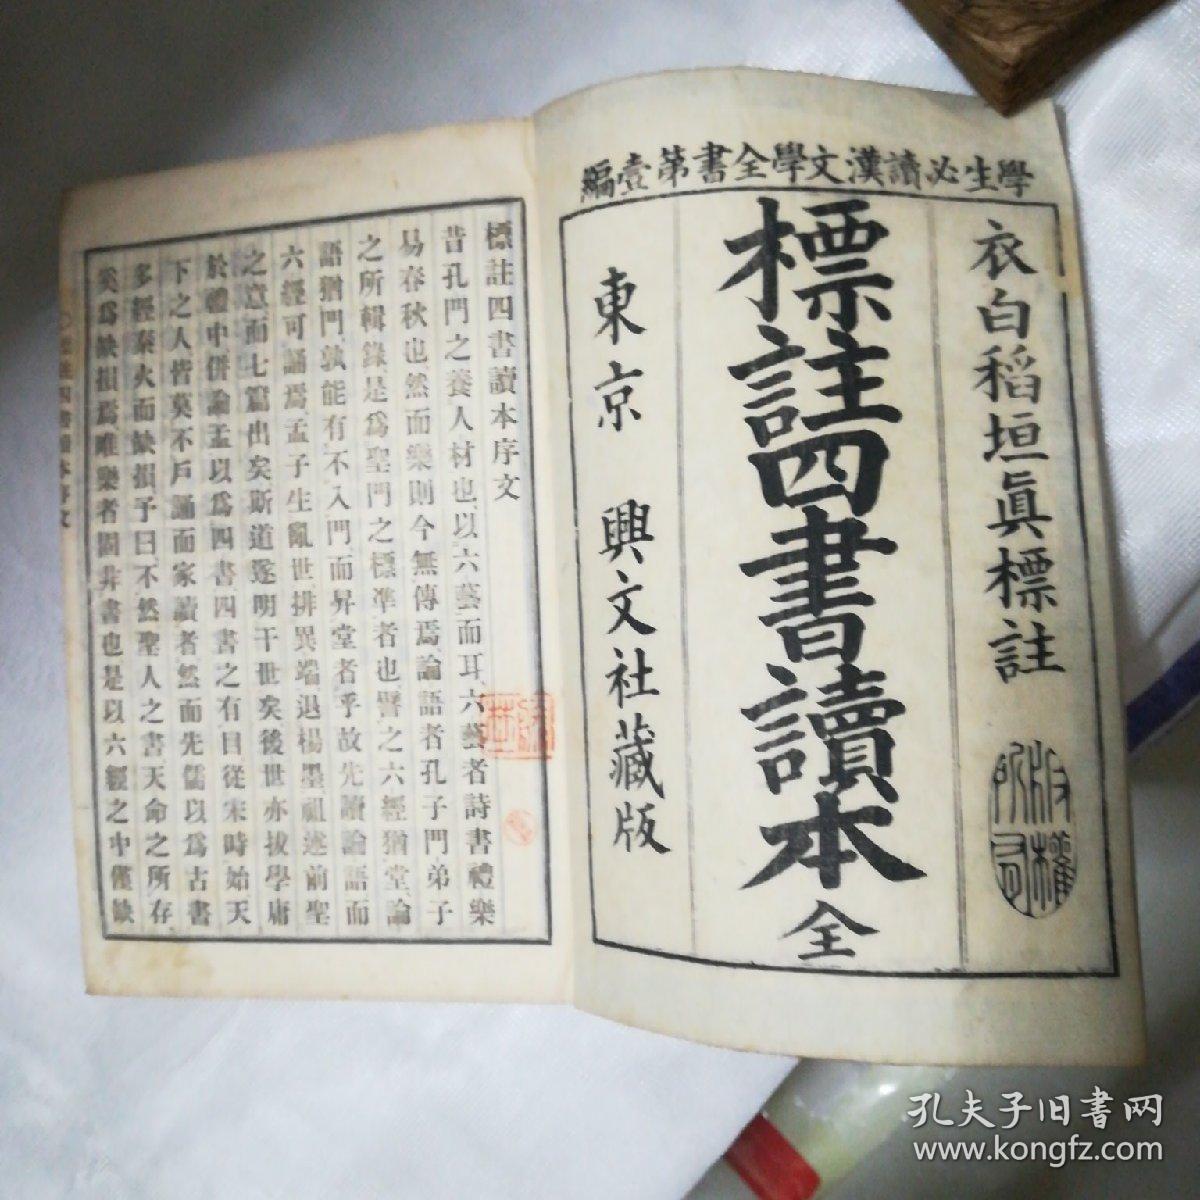 學生必讀漢文學全書第壹編
衣白稻垣眞標註
版權所有
標註四書讀本全
東京 興文社藏版
標註四書讀本序文
昔孔門之養人材也以六藝而耳六藝者詩書禮樂
易春秋也然而樂則今無傳焉論語者孔子門弟子
之所輯錄是爲聖門之標準者也譬之六經猶堂論
語猶門孰能有不入門而昇堂者乎故先讀論語而
六經可誦焉孟子生亂世排異端退楊墨祖述前聖
之意而七篇出矣斯道遂明于世矣後世亦拔學庸
於禮中併論孟以爲四書四書之有目從宋時始天
下之人皆莫不戶誦而家讀者然而先儒以爲古書
多經秦火而缺損予曰不然聖人之書天命之所存
奚爲缺損焉唯樂者固非書也是以六經之中僅缺
標註四書讀本序文
孔夫子旧书网
www.kongfz.com